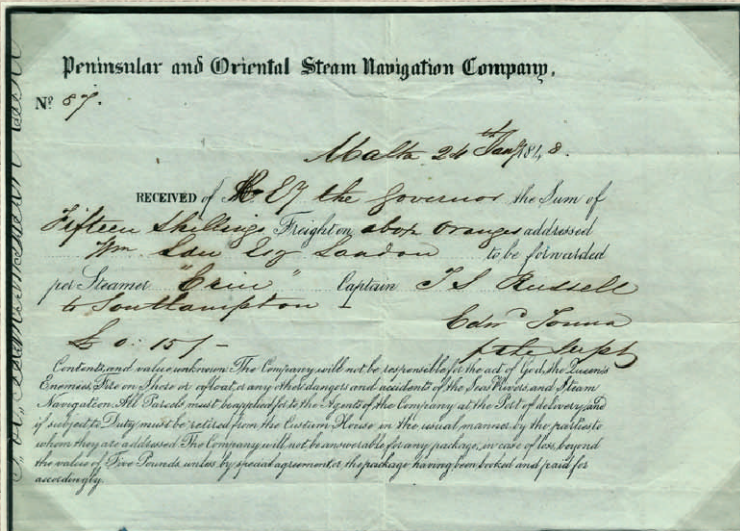 Peninsular and Oriental Steam Navigation Company.
Nº 87.
Malta 24th Jany 1848.
RECEIVED of H. Ey the Governor the Sum of
Fifteen Shillings Freight on a box oranges addressed
Wm. Esq London to be forwarded
per Steamer "Erin" Captain T S Russell
to Southampton –
Edwd Tonna
£ 0: 15/-
Contents and value unknown. The Company will not be responsible for the act of God, the Queen's
Enemies, Fire on Shore or afloat, or any other dangers and accidents of the Seas, Rivers, and Steam
Navigation. All Parcels must be applied for to the Agents of the Company at the Port of delivery, and
if subject to Duty must be retired from the Custom House in the usual manner, by the parties to
whom they are addressed. The Company will not be answerable for any package, in case of loss, beyond
the value of Five Pounds, unless by special agreement or the package having been booked and paid for
accordingly.